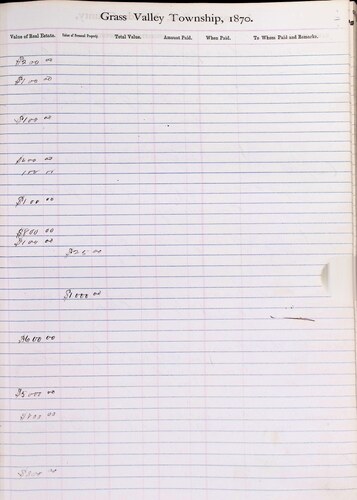 Grass Valley Township, 1870.
Value of Real Estate. Value of Personal Property. Total Value. Amount Paid. When Paid. To Whom Paid and Remarks.
$100 00
$100 00
$600 00
100 00
$100 00
$800 00
$100 00
$25 00
$1000 00
$600 00
$5000 00